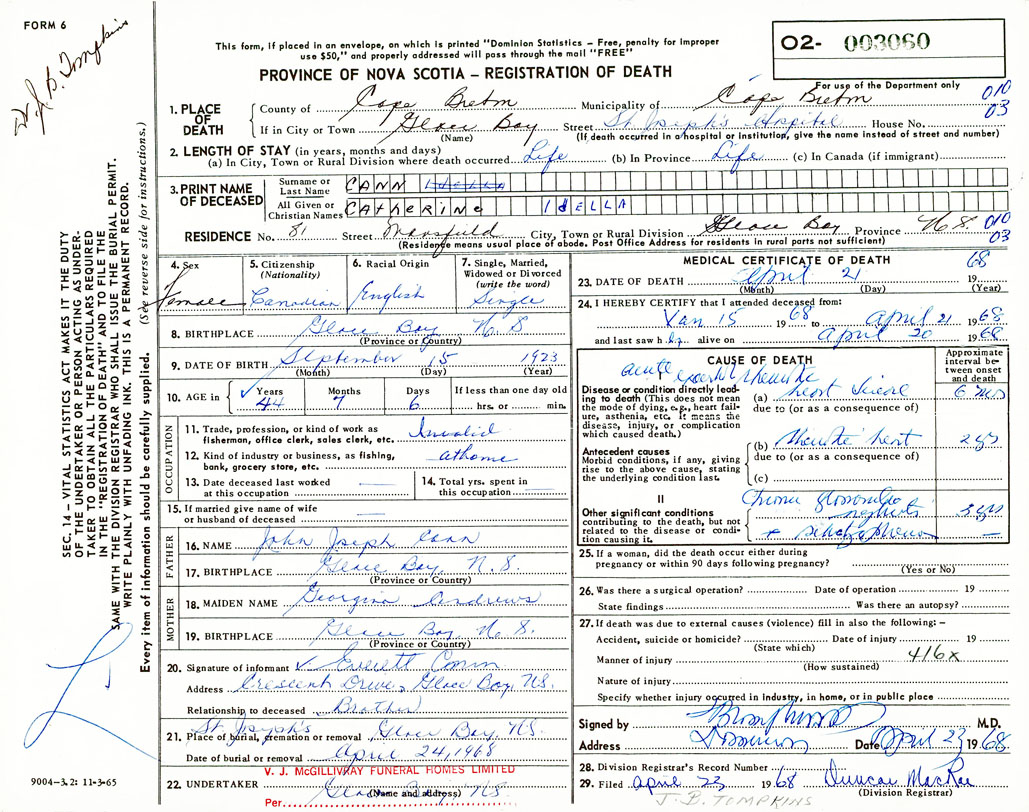 FORM 6
Dr J. B. Tompkins
This form, if placed in an envelope, on which is printed "Dominion Statistics – Free, penalty for improper
use $50," and properly addressed will pass through the mail "FREE"
O2- 003060
PROVINCE OF NOVA SCOTIA – REGISTRATION OF DEATH
For use of the Department only
1. PLACE OF DEATH
County of Cape Breton Municipality of Cape Breton 010
03
If in City or Town Glace Bay Street St. Joseph's Hospital House No.
(Name) (If death occurred in a hospital or Institution, give the name instead of street and number)
2. LENGTH OF STAY (in years, months and days)
(a) In City, Town or Rural Division where death occurred Life (b) In Province Life (c) In Canada (if immigrant)
3. PRINT NAME OF DECEASED
Surname or Last Name CANN
All Given or Christian Names CATHERINE IDELLA
RESIDENCE No. 81 Street Mansfield City, Town or Rural Division Glace Bay Province N.S. 010
03
(Residence means usual place of abode. Post Office Address for residents in rural parts not sufficient)
4. Sex
Female
5. Citizenship
(Nationality)
Canadian
6. Racial Origin
English
7. Single, Married,
Widowed or Divorced
(write the word)
Single
8. BIRTHPLACE Glace Bay N.S
(Province or Country)
9. DATE OF BIRTH September 15 1923
(Month) (Day) (Year)
10. AGE in
Years Months Days If less than one day old
44 7 6 hrs. or min.
OCCUPATION
11. Trade, profession, or kind of work as
fisherman, office clerk, sales clerk, etc. Invalid
12. Kind of industry or business, as fishing,
bank, grocery store, etc. at home
13. Date deceased last worked
at this occupation —
14. Total yrs. spent in
this occupation —
15. If married give name of wife
or husband of deceased —
FATHER
16. NAME John Joseph Cann
17. BIRTHPLACE Glace Bay, N.S.
(Province or Country)
MOTHER
18. MAIDEN NAME Georgina Andrews
19. BIRTHPLACE Glace Bay, N.S.
(Province or Country)
20. Signature of informant Everett Cann
Address Crescent Drive, Glace Bay, N.S.
Relationship to deceased Brother
21. St. Joseph's Glace Bay, N.S.
Place of burial, cremation or removal
Date of burial or removal April 24, 1968
V. J. McGILLIVRAY FUNERAL HOMES LIMITED
22. UNDERTAKER Glace Bay, N.S.
(Name and address)
Per
MEDICAL CERTIFICATE OF DEATH
23. DATE OF DEATH April 21 1968
(Month) (Day) (Year)
24. I HEREBY CERTIFY that I attended deceased from:
Jan 15 1968 to April 21 1968
and last saw her alive on April 20 1968
CAUSE OF DEATH
Approximate
interval between
onset
and death
Disease or condition directly leading
to death (This does not mean
the mode of dying, e.g., heart failure,
asthenia, etc. It means the
disease, injury, or complication
which caused death.)
acute
(a) heart 6 mos
due to (or as a consequence of)
Antecedent causes
Morbid conditions, if any, giving
rise to the above cause, stating
the underlying condition last.
(b) heart 2 yrs
due to (or as a consequence of)
(c)
II
Other significant conditions
contributing to the death, but not
related to the disease or condition
causing it.
nephritis 3 yrs
+ —
25. If a woman, did the death occur either during
pregnancy or within 90 days following pregnancy?
(Yes or No)
26. Was there a surgical operation? Date of operation 19
State findings Was there an autopsy?
27. If death was due to external causes (violence) fill in also the following: –
Accident, suicide or homicide? Date of injury 19
(State which)
Manner of injury 416x
(How sustained)
Nature of injury
Specify whether injury occurred in industry, in home, or in public place
Signed by M.D.
Address Date April 23 1968
28. Division Registrar's Record Number
29. Filed April 23 1968 Duncan MacRae
(Division Registrar)
J. B. TOMPKINS
SEC. 14 – VITAL STATISTICS ACT MAKES IT THE DUTY
OF THE UNDERTAKER OR PERSON ACTING AS UNDERTAKER
TO OBTAIN ALL THE PARTICULARS REQUIRED
IN THE "REGISTRATION OF DEATH" AND TO FILE THE
SAME WITH THE DIVISION REGISTRAR WHO SHALL ISSUE THE BURIAL PERMIT.
WRITE PLAINLY WITH UNFADING INK. THIS IS A PERMANENT RECORD.
Every item of information should be carefully supplied. (See reverse side for instructions.)
9004–3.2: 11-3-65